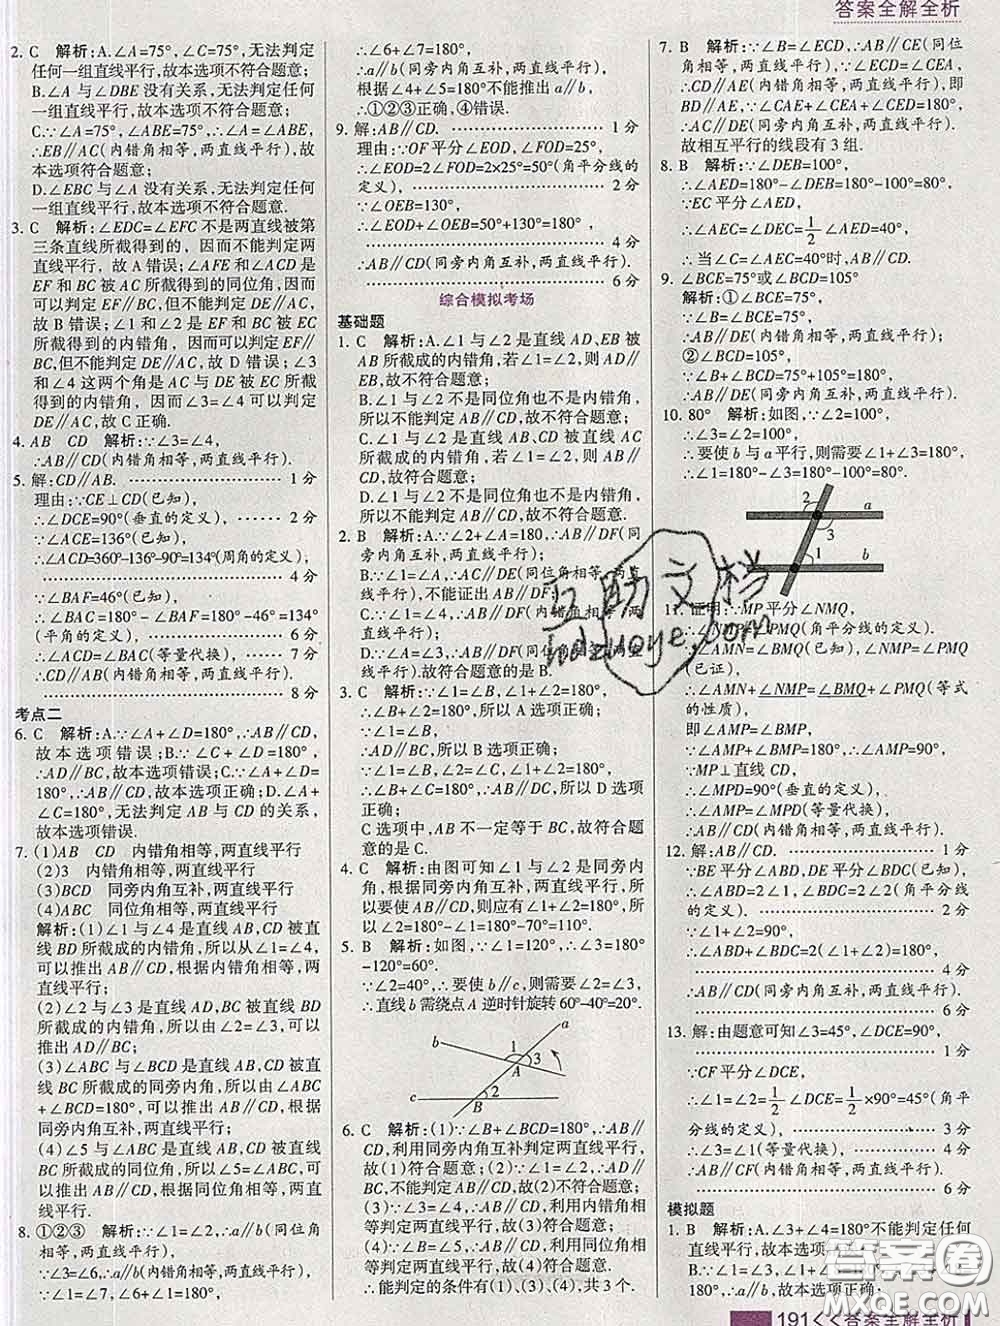 答案全解全析
2. C 解析:A.∠A=75°,∠C=75°,无法判定
任何一组直线平行,故本选项不符合题意;
B.∠A 与∠DBE 没有关系,无法判定任何
一组直线平行,故本选项不符合题意;
C.∵∠A=75°,∠ABE=75°,∴∠A=∠ABE,
∴EB∥AC(内错角相等,两直线平行),故本
选项符合题意;
D.∠EBC 与∠A 没有关系,无法判定任何
一组直线平行,故本选项不符合题意.
3. C 解析:∠EDC=∠EFC 不是两直线被第
三条直线所截得到的,因而不能判定两
直线平行,故 A 错误;∠AFE 和∠ACD 是
EF 和 BC 被 AC 所截得到的同位角,因而
可以判定 EF∥BC,但不能判定 DE∥AC,
故 B 错误;∠1 和∠2 是 EF 和 BC 被 DE
所截得到的内错角,因而可以判定 EF∥
BC,但不能判定 DE∥AC,故 D 错误;∠3
和∠4 这两个角是 AC 与 DE 被 EC 所截
得到的内错角,因而∠3=∠4 可以判定
DE∥AC,故 C 正确.
4. AB CD 解析:∵∠3=∠4,
∴AB∥CD(内错角相等,两直线平行).
5. 解:CD∥AB. 1 分
理由:∵CE⊥CD(已知),
∴∠DCE=90°(垂直的定义), 2 分
∵∠ACE=136°(已知),
∴∠ACD=360°-136°-90°=134°(周角的定义),
4 分
∵∠BAF=46°(已知),
∴∠BAC=180°-∠BAF=180°-46°=134°
(平角的定义), 6 分
∴∠ACD=∠BAC(等量代换), 7 分
∴CD∥AB(内错角相等,两直线平行).
8 分
考点二
6. C 解析:A.∵∠A+∠D=180°,∴AB∥CD,
故本选项错误;B.∵∠C+∠D=180°,
∴AD∥BC,故本选项错误;C.∵∠A+∠D=
180°,∴AB∥CD,故本选项正确;D.∠A+
∠C=180°,无法判定 AB 与 CD 的关系,
故本选项错误.
7. (1)AB CD 内错角相等,两直线平行
(2)3 内错角相等,两直线平行
(3)BCD 同旁内角互补,两直线平行
(4)ABC 同位角相等,两直线平行
解析:(1)∠1 与∠4 是直线 AB,CD 被
直线 BD 所截成的内错角,所以从∠1=∠4,
可以推出 AB∥CD,根据内错角相等,两
直线平行;
(2)∠2 与∠3 是直线 AD,BC 被直线 BD
所截成的内错角,所以由∠2=∠3,可以
推出 AD∥BC;
(3)∠ABC 与∠BCD 是直线 AB,CD 被直
线 BC 所截成的同旁内角,所以由∠ABC+
∠BCD=180°,可以推出 AB∥CD,根据同
旁内角互补,两直线平行;
(4)∠5 与∠ABC 是直线 AB,CD 被直线
BC 所截成的同位角,所以由∠5=∠ABC,
可以推出 AB∥CD,根据同位角相等,两直
线平行.
8. ①②③ 解析:∵∠1=∠2,∴a∥b(同位角
相等,两直线平行),
∵∠3=∠6,∴a∥b(内错角相等,两直线平行),
∵∠4+∠7=180°,∠4=∠6,
∴∠6+∠7=180°,
∴a∥b(同旁内角互补,两直线平行),
根据∠4+∠5=180°不能推出 a∥b,
∴①②③正确,④错误.
9. 解:AB∥CD. 1 分
理由:∵OF 平分∠EOD,∠FOD=25°,
∴∠EOD=2∠FOD=2×25°=50°(角平分线的
定义), 2 分
∵∠OEB=130°,
∴∠EOD+∠OEB=50°+130°=180°,
4 分
∴AB∥CD(同旁内角互补,两直线平行).
6 分
综合模拟考场
基础题
1. C 解析:A.∠1 与∠2 是直线 AD,EB 被
AB 所截成的内错角,若∠1=∠2,则 AD∥
EB,故不符合题意;
B.∠1 与∠2 不是同位角也不是内错角,
所以不能判定 AB∥CD,故不符合题意;
C.∠1 与∠2 是直线 AB,CD 被直线 AC
所截成的内错角,若∠1=∠2,则 AB∥
CD,故符合题意;
D.∠1 与∠2 不是同位角也不是内错角,
所以不能判定 AB∥CD,故不符合题意.
2. B 解析:A.∵∠2+∠A=180°,∴AB∥DF(同
旁内角互补,两直线平行);
B.∵∠1=∠A,∴AC∥DE(同位角相等,两直线平
行),不能证出 AB∥DF;
C.∵∠1=∠4,∴AB∥DF(内错角相等,两直线平行);
D.∵∠A=∠3,∴AB∥DF(同位角相等,两直
线平行).故符合题意的是 B.
3. C 解析:∵∠1=∠B,∠1+∠2=180°,
∴∠B+∠2=180°,所以 A 选项正确;
∴AB∥CD,
∴∠B+∠C=180°,所以 B 选项正确;
∵∠1=∠B,
∴AB∥CD,所以 D 选项正确;
C 选项中,AB 不一定等于 BC,故符合题
意的是 C.
4. C 解析:由图可知∠1 与∠2 是同旁内角,
所以要使 AB∥CD,则应有∠1+∠2=180°,
所以∠2=180°-∠1=180°-70°=110°.
5. B 解析:如图,∵∠1=120°,∴∠3=180°
-120°=60°.
∵∠2=40°,∴要使 b∥c,则需要∠2=∠3,
∴直线 b 需绕点 A 逆时针旋转 60°-40°=20°.
a
b
1
3
A
2
c
B
6. C 解析:(1)∵∠B+∠BCD=180°,∴AB∥
CD,利用同旁内角互补判定两直线平行,
故(1)符合题意;(2)∵∠1=∠2,∴AD∥
BC,不能判定 AB∥CD,故(2)不符合题意;
(3)∵∠3=∠4,∴AB∥CD,利用内错角相
等判定两直线平行,故(3)符合题意;
(4)∵∠B=∠5,∴AB∥CD,利用同位角相
等判定两直线平行,故(4)符合题意.
∴能判定的条件有(1)、(3)、(4),共 3 个.
7. B 解析:∵∠B=∠ECD,∴AB∥CE(同位
角相等,两直线平行),∵∠ACD=∠CEA,
∴CD∥AE(内错角相等,两直线平行),即
BD∥AE,∵∠CAE+∠CEA+∠ECD=180°,
∴AC∥DE(同旁内角互补,两直线平行).
故相互平行的线段有 3 组.
8. B 解析:∵∠DEB=100°,
∴∠AED=180°-∠DEB=180°-100°=80°,
∵EC 平分∠AED,
∴∠AEC=∠DEC=1/2∠AED=40°,
∴当∠C=∠AEC=40°时,AB∥CD.
9. ∠BCE=75°或∠BCD=105°
解析:①∠BCE=75°,
∵∠B=∠BCE=75°,
∴AB∥CD(内错角相等,两直线平行);
②∠BCD=105°,
∵∠B+∠BCD=75°+105°=180°,
∴AB∥CD(同旁内角互补,两直线平行).
10. 80° 解析:如图,∵∠2=100°,
∴要使 b 与 a 平行,则需∠1+∠3=180°,
∴∠1=180°-∠3=180°-100°=80°.
2
a
3
1
b
11. 证明:∵MP 平分∠NMQ,
∴∠NMP=∠PMQ(角平分线的定义).
∵∠AMN=∠BMQ(已知),∠NMP=∠PMQ
(已证),
∴∠AMN+∠NMP=∠BMQ+∠PMQ(等式
的性质),
即∠AMP=∠BMP.
∵∠AMP+∠BMP=180°,∴∠AMP=90°,
∵MP⊥直线 CD,
∴∠MPD=90°(垂直的定义),
∴∠AMP=∠MPD(等量代换),
∴AB∥CD(内错角相等,两直线平行).
12. 解:AB∥CD. 1 分
∵BE 平分∠ABD,DE 平分∠BDC(已知),
∴∠ABD=2∠1,∠BDC=2∠2(角平分线
的定义). 2 分
∵∠1+∠2=90°,
∴∠ABD+∠BDC=2(∠1+∠2)=180°,
4 分
∴AB∥CD(同旁内角互补,两直线平行).
6 分
13. 解:由题意可知∠3=45°,∠DCE=90°,
1 分
∵CF 平分∠DCE,
∴∠1=∠2=1/2∠DCE=1/2×90°=45°(角平
分线的定义), 3 分
∴∠1=∠3(等量代换),
∴AB∥CF(内错角相等,两直线平行).
6 分
模拟题
1. B 解析:A.∠3+∠4=180°不能判定任何
直线平行,故本选项
∥b,故本选项正确;
互助文档
hdzuoye.com
答案圈
MXQE.COM
191<<答案全解全析